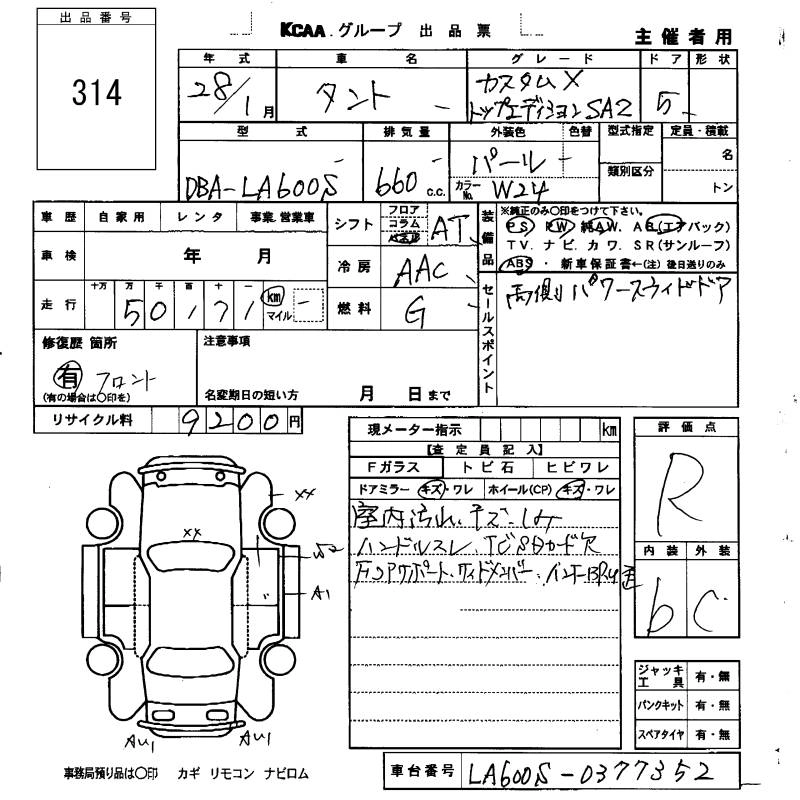 出品番号
314
KCAA.グループ 出品票
主催者用
年式 車名 グレード ドア 形状
28/1月 タント - カスタムX トップエディションSA2 5 -
型式 排気量 外装色 色替 型式指定 定員・積載
DBA-LA600S - 660 c.c. パール - 名
カラーNo. W24 類別区分 トン
車歴 自家用 レンタ 事業.営業車
シフト フロア コラム AT
装備品
※純正のみ○印をつけて下さい。
PS PW 純AW. AB.(エアバック)
TV. ナビ. カワ. SR(サンルーフ)
ABS ・ 新車保証書←(注) 後日送りのみ
車検 年 月
冷房 AAC
走行 十万 万 千 百 十 一
50171 km マイル -
燃料 G
セールスポイント
両側パワースライドドア
修復歴 箇所
有 フロント
(有の場合は○印を)
注意事項
名変期日の短い方 月 日まで
リサイクル料 9200円
現メーター指示 km
【査定員記入】
Fガラス トビ石 ヒビワレ
ドアミラー キズ・ワレ ホイール(CP) キズ・ワレ
室内汚れ、キズ、シミ
ハンドルスレ、
評価点
R
内装 外装
b C
XX
XX
A1
AU1 AU1
ジャッキ工具 有・無
パンクキット 有・無
スペアタイヤ 有・無
事務局預り品は○印 カギ リモコン ナビロム
車台番号 LA600S-0377352